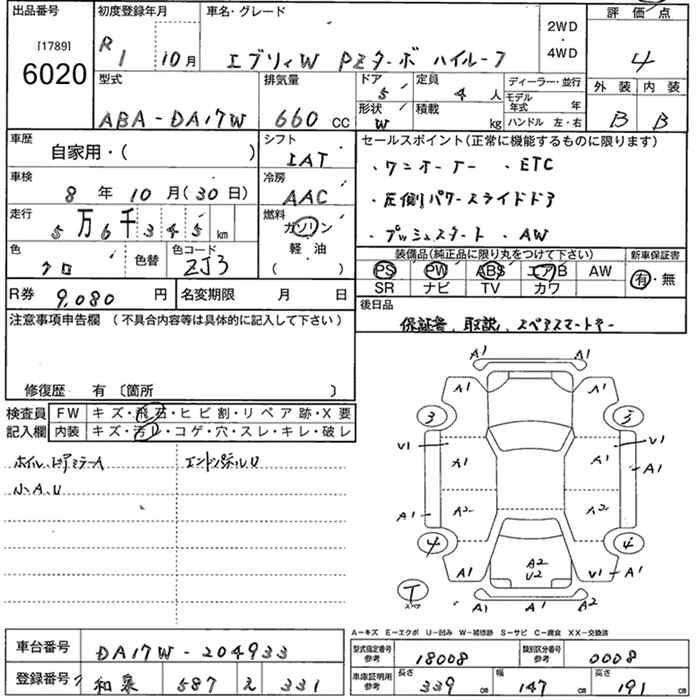 出品番号 初度登録年月 車名・グレード 2WD ・ 4WD 評価点
[1789] 6020 R1 10月 エブリィW PZターボ ハイルーフ 4
型式 排気量 ドア 5 定員 4人 ディーラー・並行 外装 内装
ABA-DA17W 660 CC 形状 W 積載 kg モデル年式 年 ハンドル 左・右 B B
車歴 自家用・( ) シフト IAT セールスポイント(正常に機能するものに限ります)
車検 8年 10月(30日) 冷房 AAC ・ワンオーナー ・ETC
・左側パワースライドドア
走行 5万6千345km 燃料 ガソリン・軽油 ( ) ・プッシュスタート ・AW
色 クロ 色替 色コード ZJ3 装備品(純正品に限り丸をつけて下さい) 新車保証書
PS PW ABS エアB AW 有・無
SR ナビ TV カワ
R券 9,080円 名変期限 月 日 後日品
保証書、取説、スペアスマートキー
注意事項申告欄 (不具合内容等は具体的に記入して下さい)
修復歴 有 〔箇所 〕
検査員 FW キズ・飛石・ヒビ割・リペア跡・X要
記入欄 内装 キズ・汚レ・コゲ・穴・スレ・キレ・破レ
ホイル、ドアミラーA エンドパネルU
小A、U
A1 A1
A1 A1
3 3
V1 V1
A1 A1 A1
A1 A2 A2
4 4
A2
A1 U2 V1 A1
T スペア A1 A1 A2
A-キズ E-エクボ U-凹み W-補修跡 S-サビ C-腐食 XX-交換済
車台番号 DA17W-204933 型式指定番号 参考 18008 類別区分番号 参考 0008
登録番号 和泉 587 え 331 車庫証明用 参考 長さ 339cm 幅 147cm 高さ 191cm